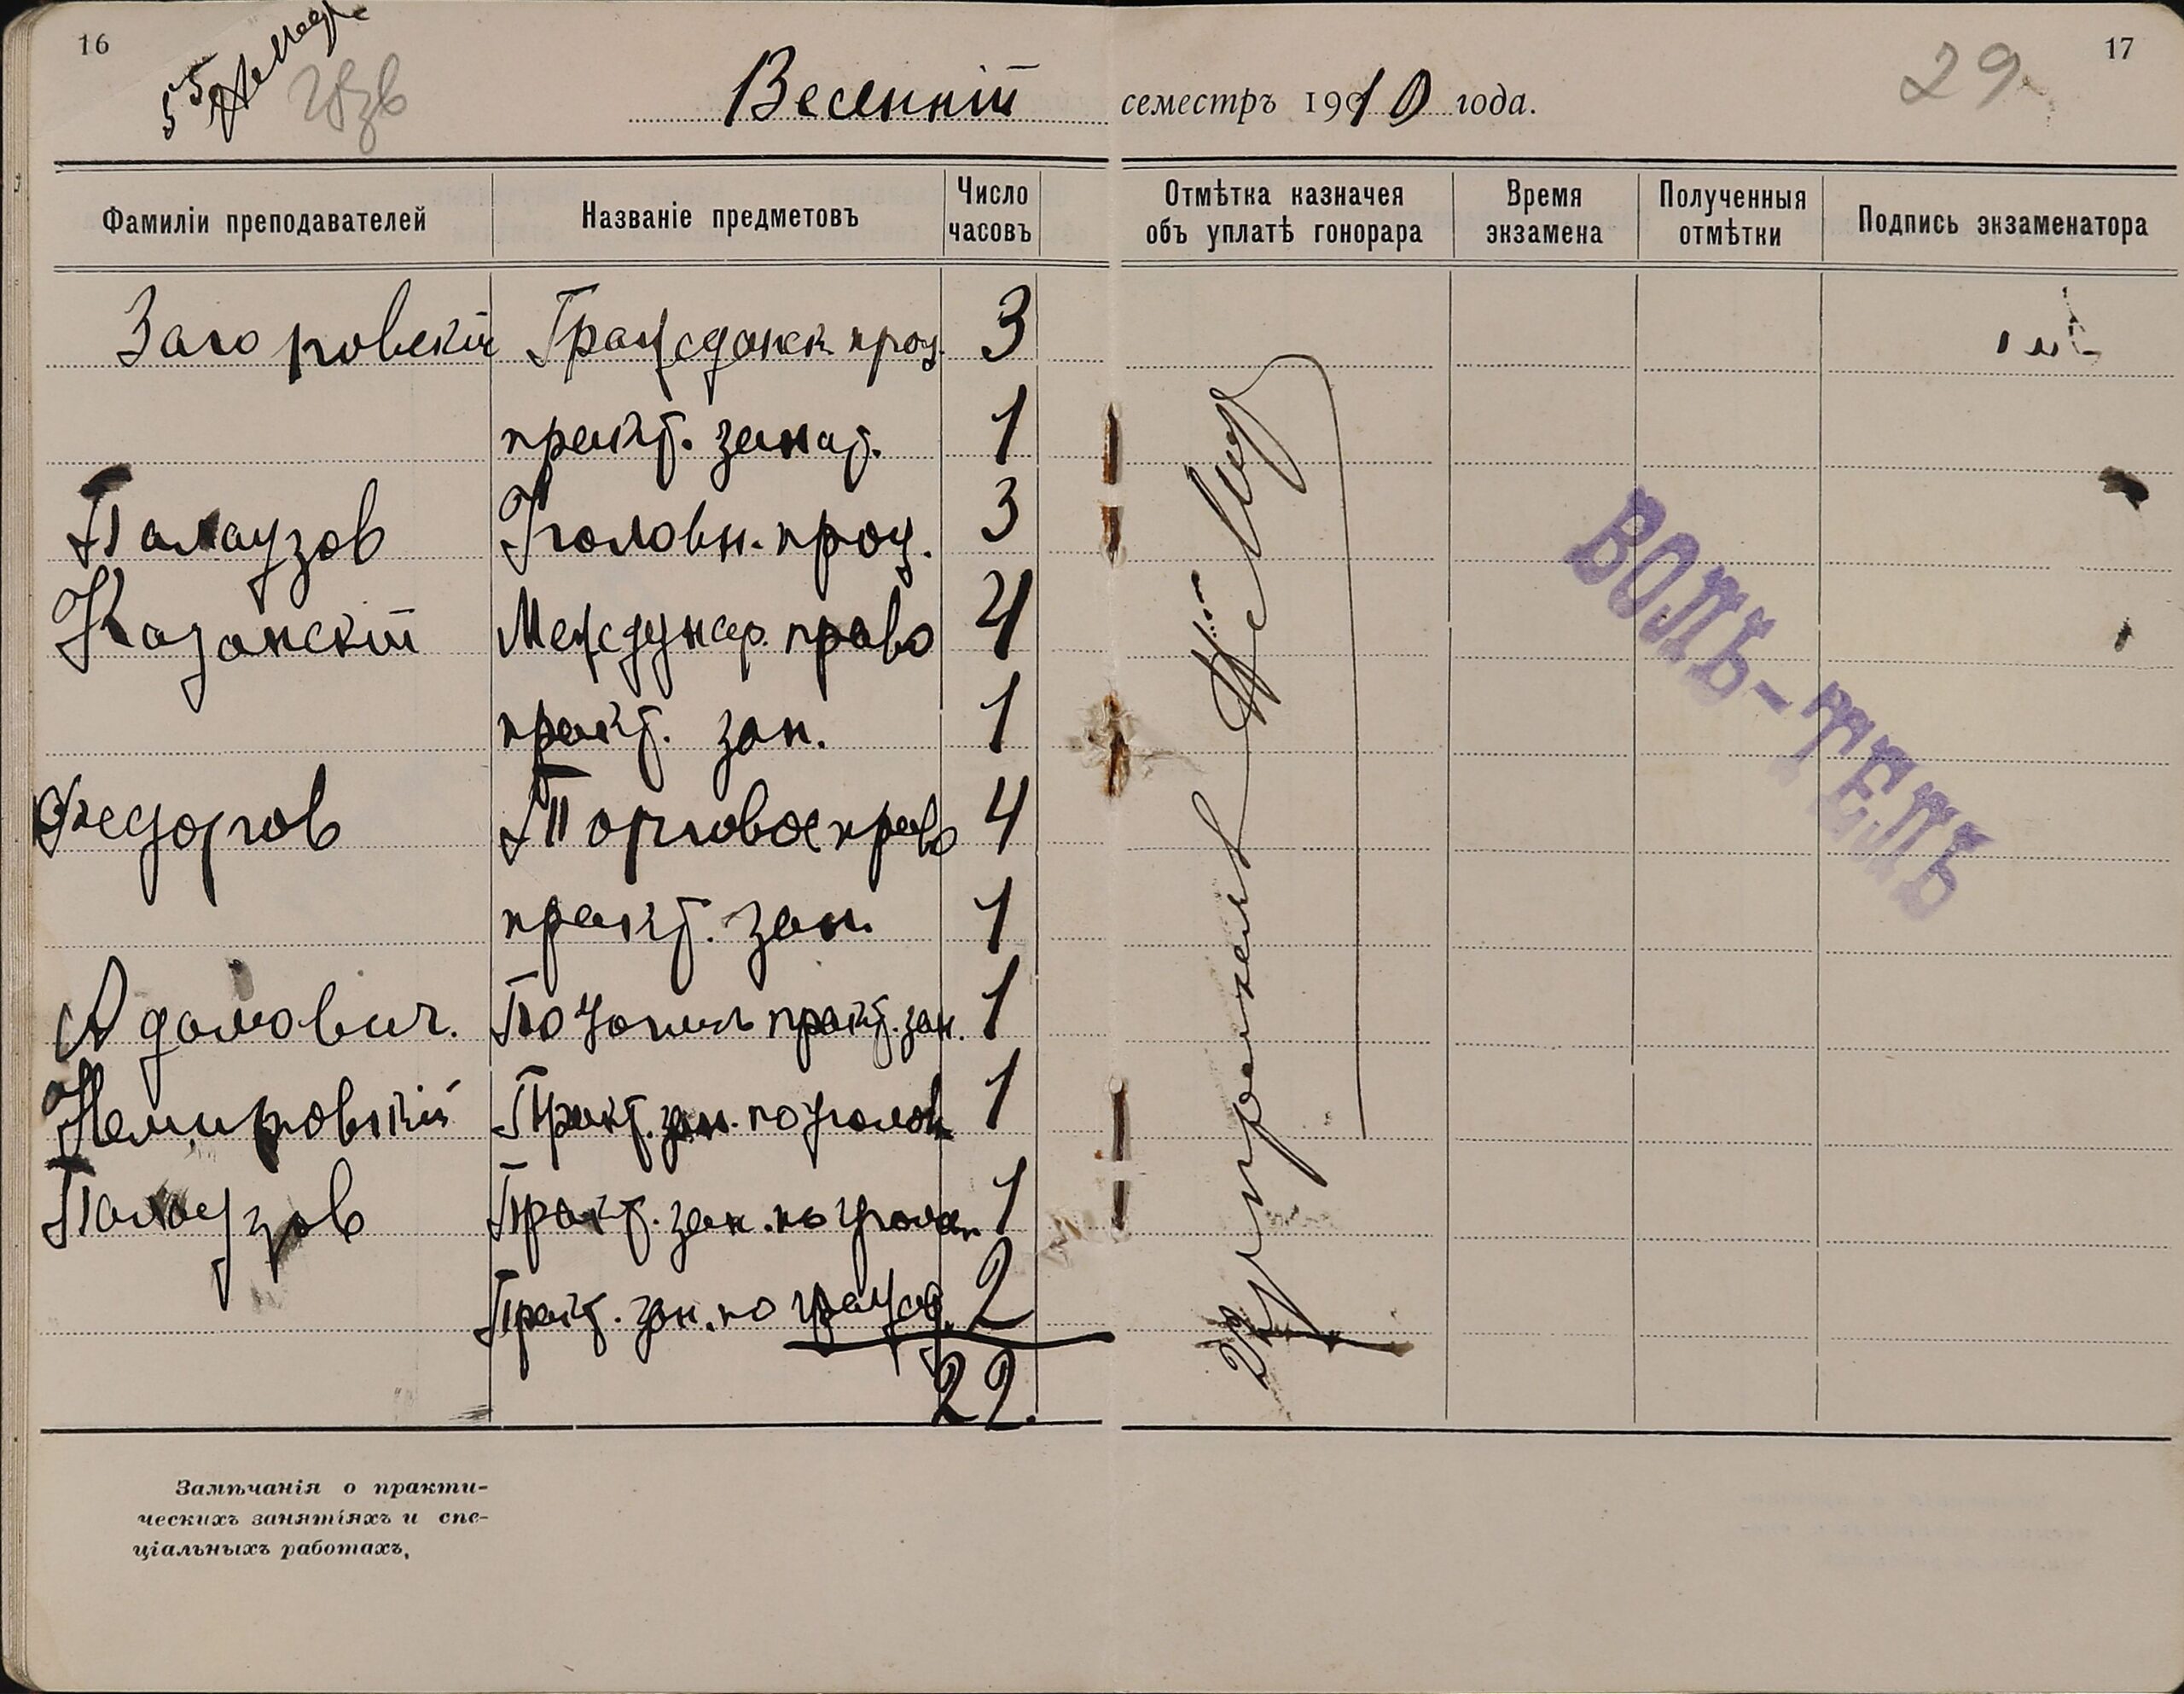 16
17
29
Весенній семестръ 1910 года.
Фамиліи преподавателей Названіе предметовъ Число часовъ Отмѣтка казначея объ уплатѣ гонорара Время экзамена Полученныя отмѣтки Подпись экзаменатора
Загоровскій Гражданск проц. 3
практ. занят. 1
Палаузов Уголовн. проц. 3
Казанскій Междунар. право 4
практ. зан. 1
Федоров Торговое право 4
практ. зан. 1
Адамович. практ. зан. 1
Немировскій Практ. зан. по уголов 1
Палаузов Практ. зан. по уголов 1
Практ. зан. по гражд. 2
22.
ВОЛЬ-ТЕЛЬ
Замѣчанія о практи-
ческихъ занятіяхъ и спе-
ціальныхъ работахъ,